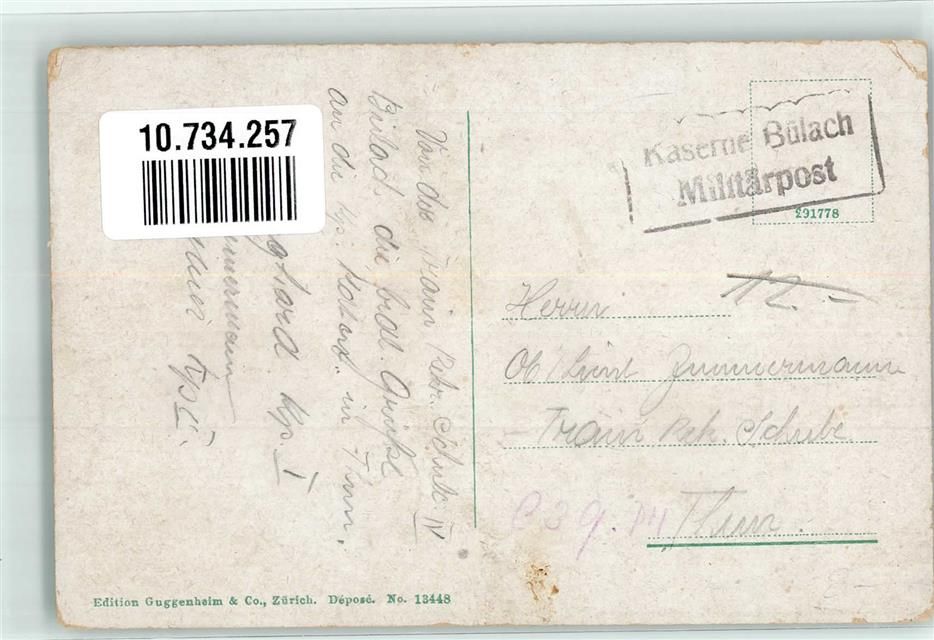 10.734.257
Von der Train Rekr. Schule IV
Bülach die best. Grüße
an die Kp. in Thun.
Kp. I
Kp II.
Kaserne Bülach
Militärpost
291778
Herrn
Ob/Lieut Zimmermann
Train Rek. Schule
Thun.
Edition Guggenheim & Co., Zürich. Déposé. No. 13448